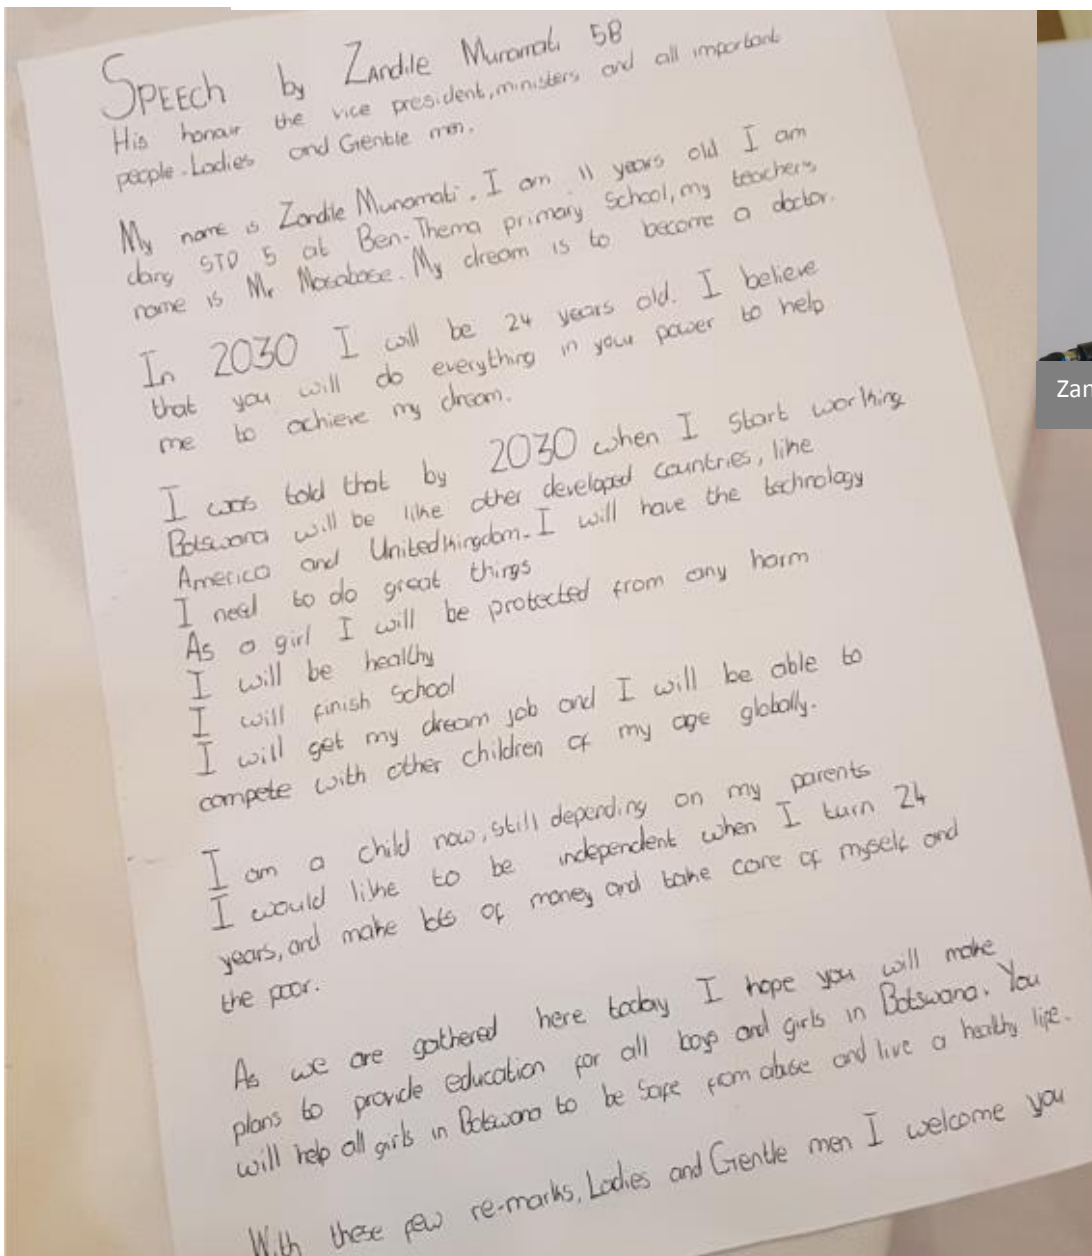 SPEECH by Zandile Munamati 5B
His honour the vice president, ministers and all important
people. Ladies and Gentle men.
My name is Zandile Munamati. I am 11 years old I am
doing STD 5 at Ben-Thema primary School, my teachers
name is Mr Mosabase. My dream is to become a doctor.
In 2030 I will be 24 years old. I believe
that you will do everything in your power to help
me to achieve my dream.
I was told that by 2030 when I start working
Botswana will be like other developed countries, like
America and United kingdom. I will have the technology
I need to do great things
As a girl I will be protected from any harm
I will be healthy
I will finish School
I will get my dream job and I will be able to
compete with other children of my age globally.
I am a child now, still depending on my parents
I would like to be independent when I turn 24
years, and make lots of money and take care of myself and
the poor.
As we are gathered here today I hope you will make
plans to provide education for all boys and girls in Botswana. You
will help all girls in Botswana to be safe from abuse and live a healthy life.
With these few re-marks, Ladies and Gentle men I welcome you
Zan